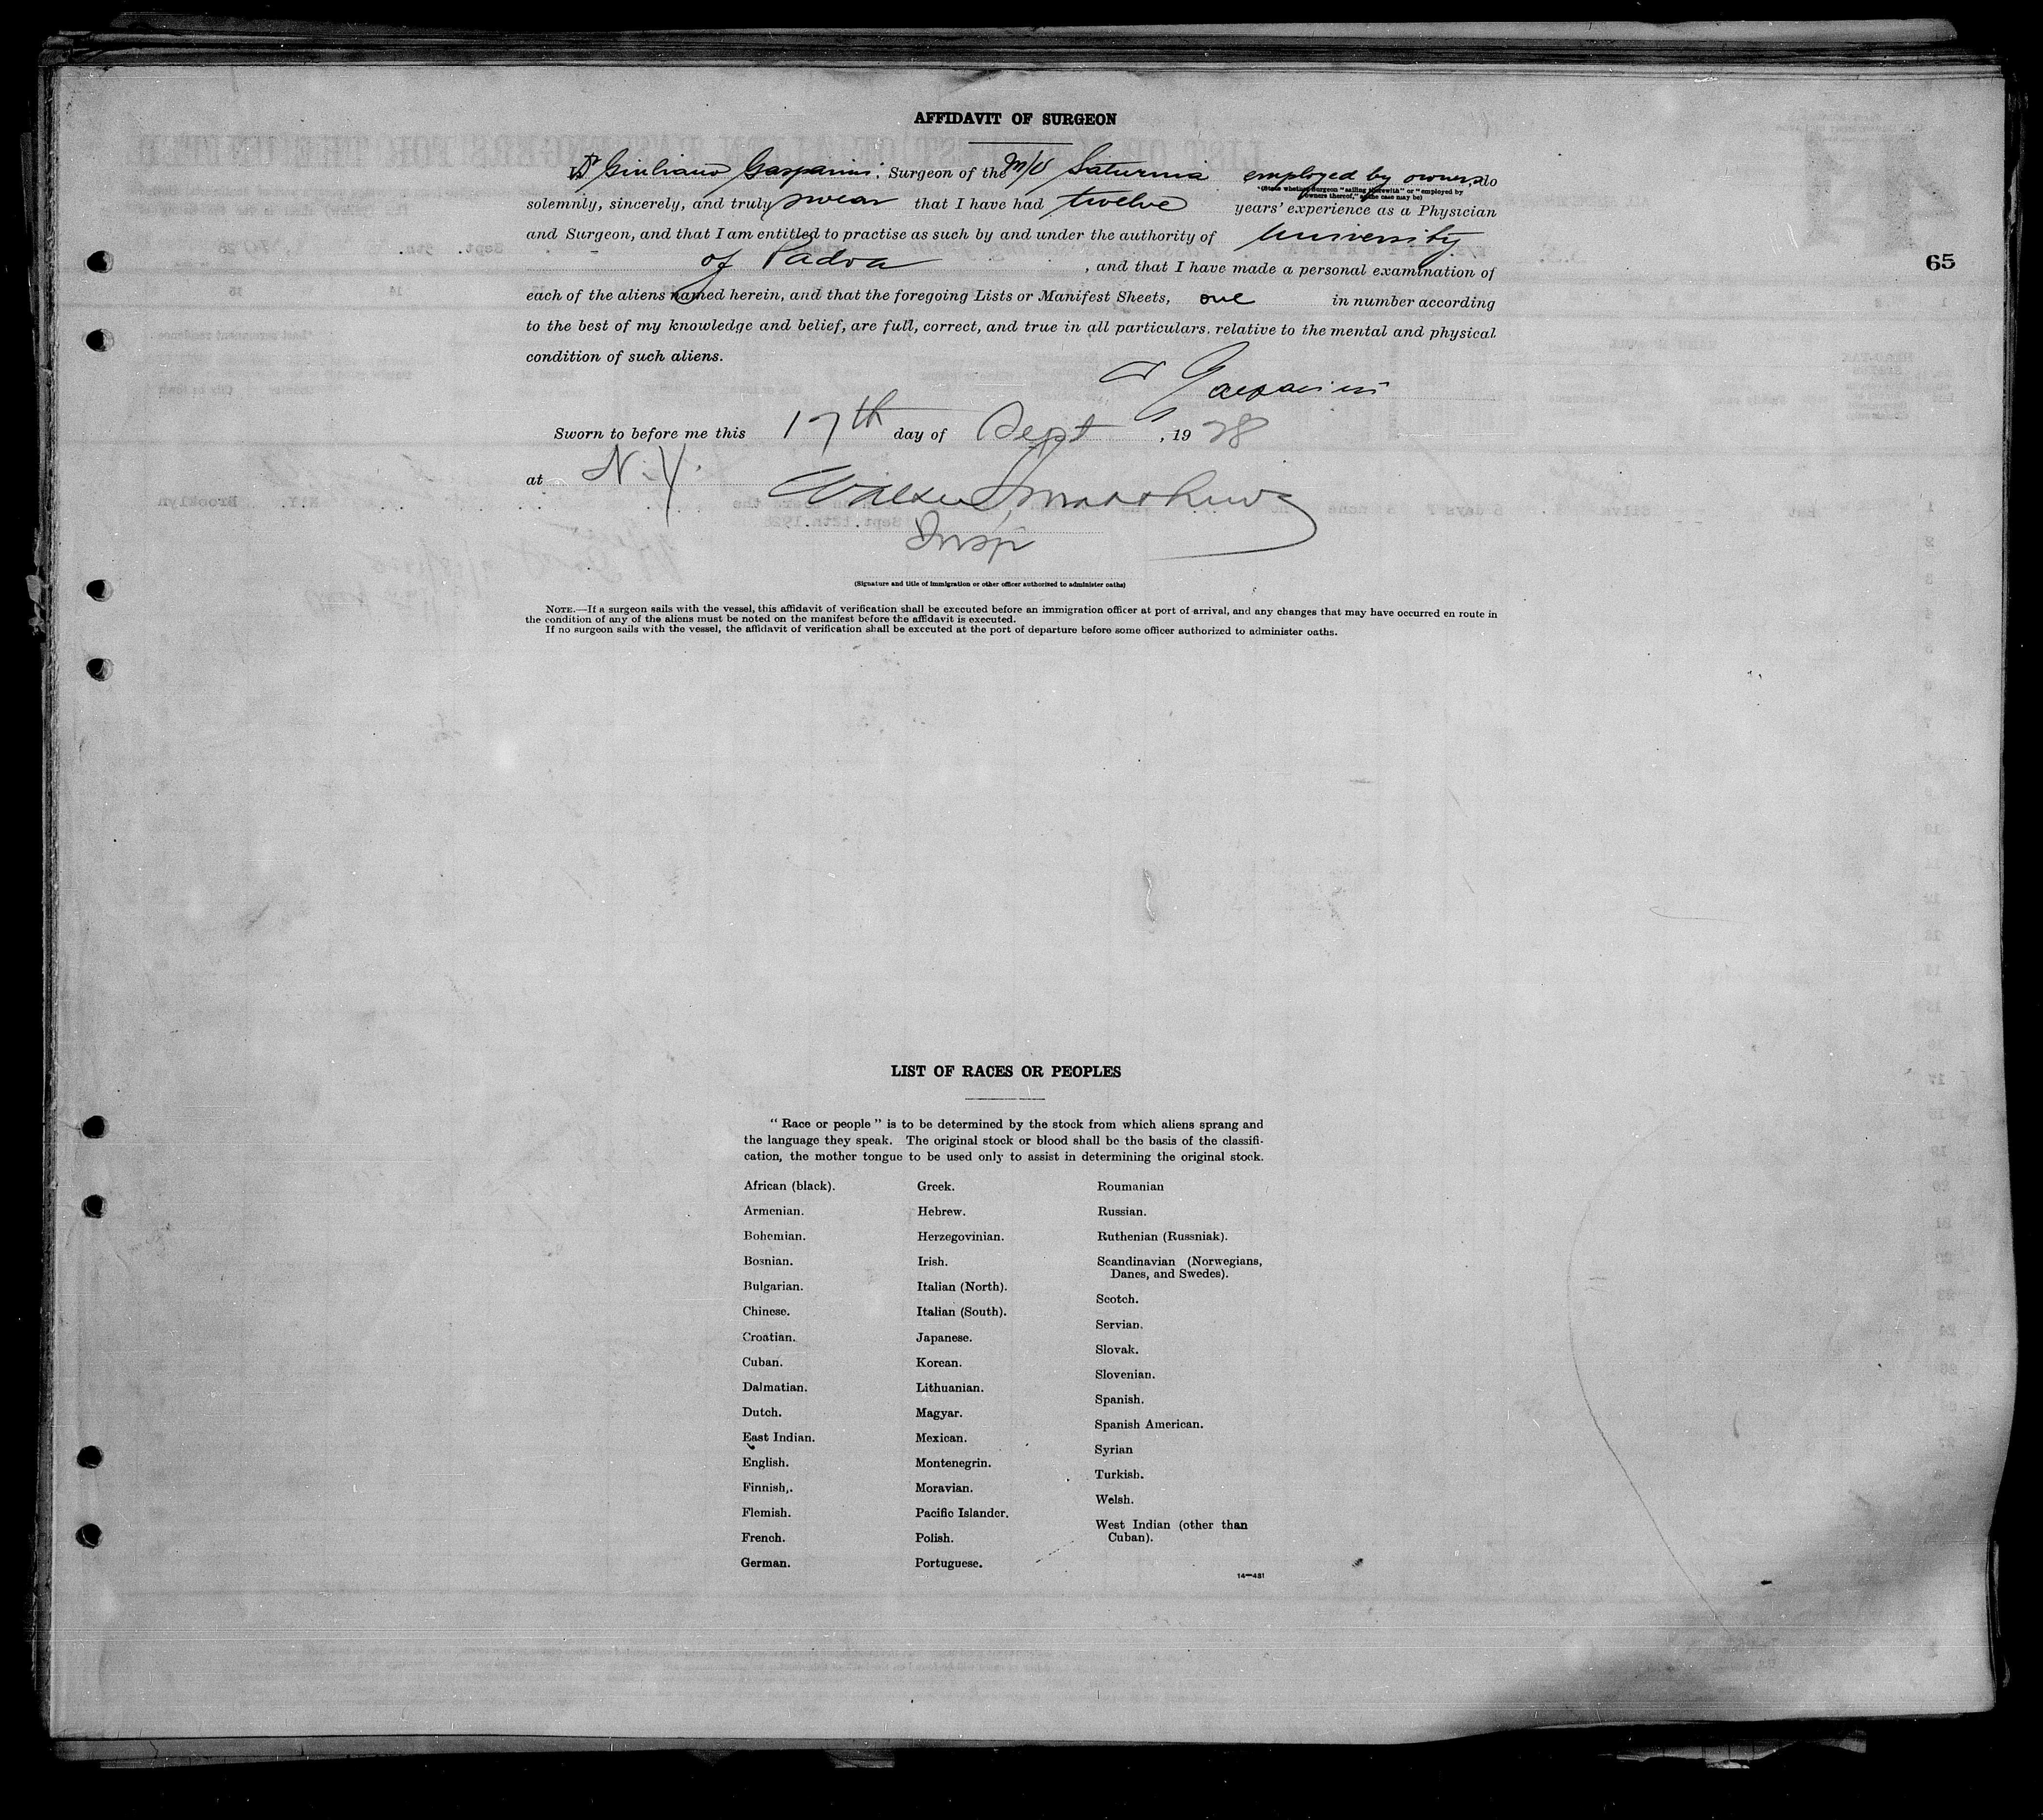 AFFIDAVIT OF SURGEON
Dr Giuliano Gasparini, Surgeon of the M/V Saturnia employed by owners, do
*(State whether surgeon "sailing therewith" or "employed by
owners thereof," as the case may be)
solemnly, sincerely, and truly swear that I have had twelve years' experience as a Physician
and Surgeon, and that I am entitled to practise as such by and under the authority of University
of Padva, and that I have made a personal examination of
each of the aliens named herein, and that the foregoing Lists or Manifest Sheets, one in number according
to the best of my knowledge and belief, are full, correct, and true in all particulars, relative to the mental and physical
condition of such aliens.
Dr Gasparini
Sworn to before me this 17th day of Sept, 1928
at N.Y.
Walter Matthews
Insp
(Signature and title of immigration or other officer authorized to administer oaths)
NOTE.—If a surgeon sails with the vessel, this affidavit of verification shall be executed before an immigration officer at port of arrival, and any changes that may have occurred en route in
the condition of any of the aliens must be noted on the manifest before the affidavit is executed.
If no surgeon sails with the vessel, the affidavit of verification shall be executed at the port of departure before some officer authorized to administer oaths.
65
LIST OF RACES OR PEOPLES
"Race or people" is to be determined by the stock from which aliens sprang and
the language they speak. The original stock or blood shall be the basis of the classifi-
cation, the mother tongue to be used only to assist in determining the original stock.
African (black).
Armenian.
Bohemian.
Bosnian.
Bulgarian.
Chinese.
Croatian.
Cuban.
Dalmatian.
Dutch.
East Indian.
English.
Finnish,.
Flemish.
French.
German.
Greek.
Hebrew.
Herzegovinian.
Irish.
Italian (North).
Italian (South).
Japanese.
Korean.
Lithuanian.
Magyar.
Mexican.
Montenegrin.
Moravian.
Pacific Islander.
Polish.
Portuguese.
Roumanian
Russian.
Ruthenian (Russniak).
Scandinavian (Norwegians,
Danes, and Swedes).
Scotch.
Servian.
Slovak.
Slovenian.
Spanish.
Spanish American.
Syrian
Turkish.
Welsh.
West Indian (other than
Cuban).
14—481